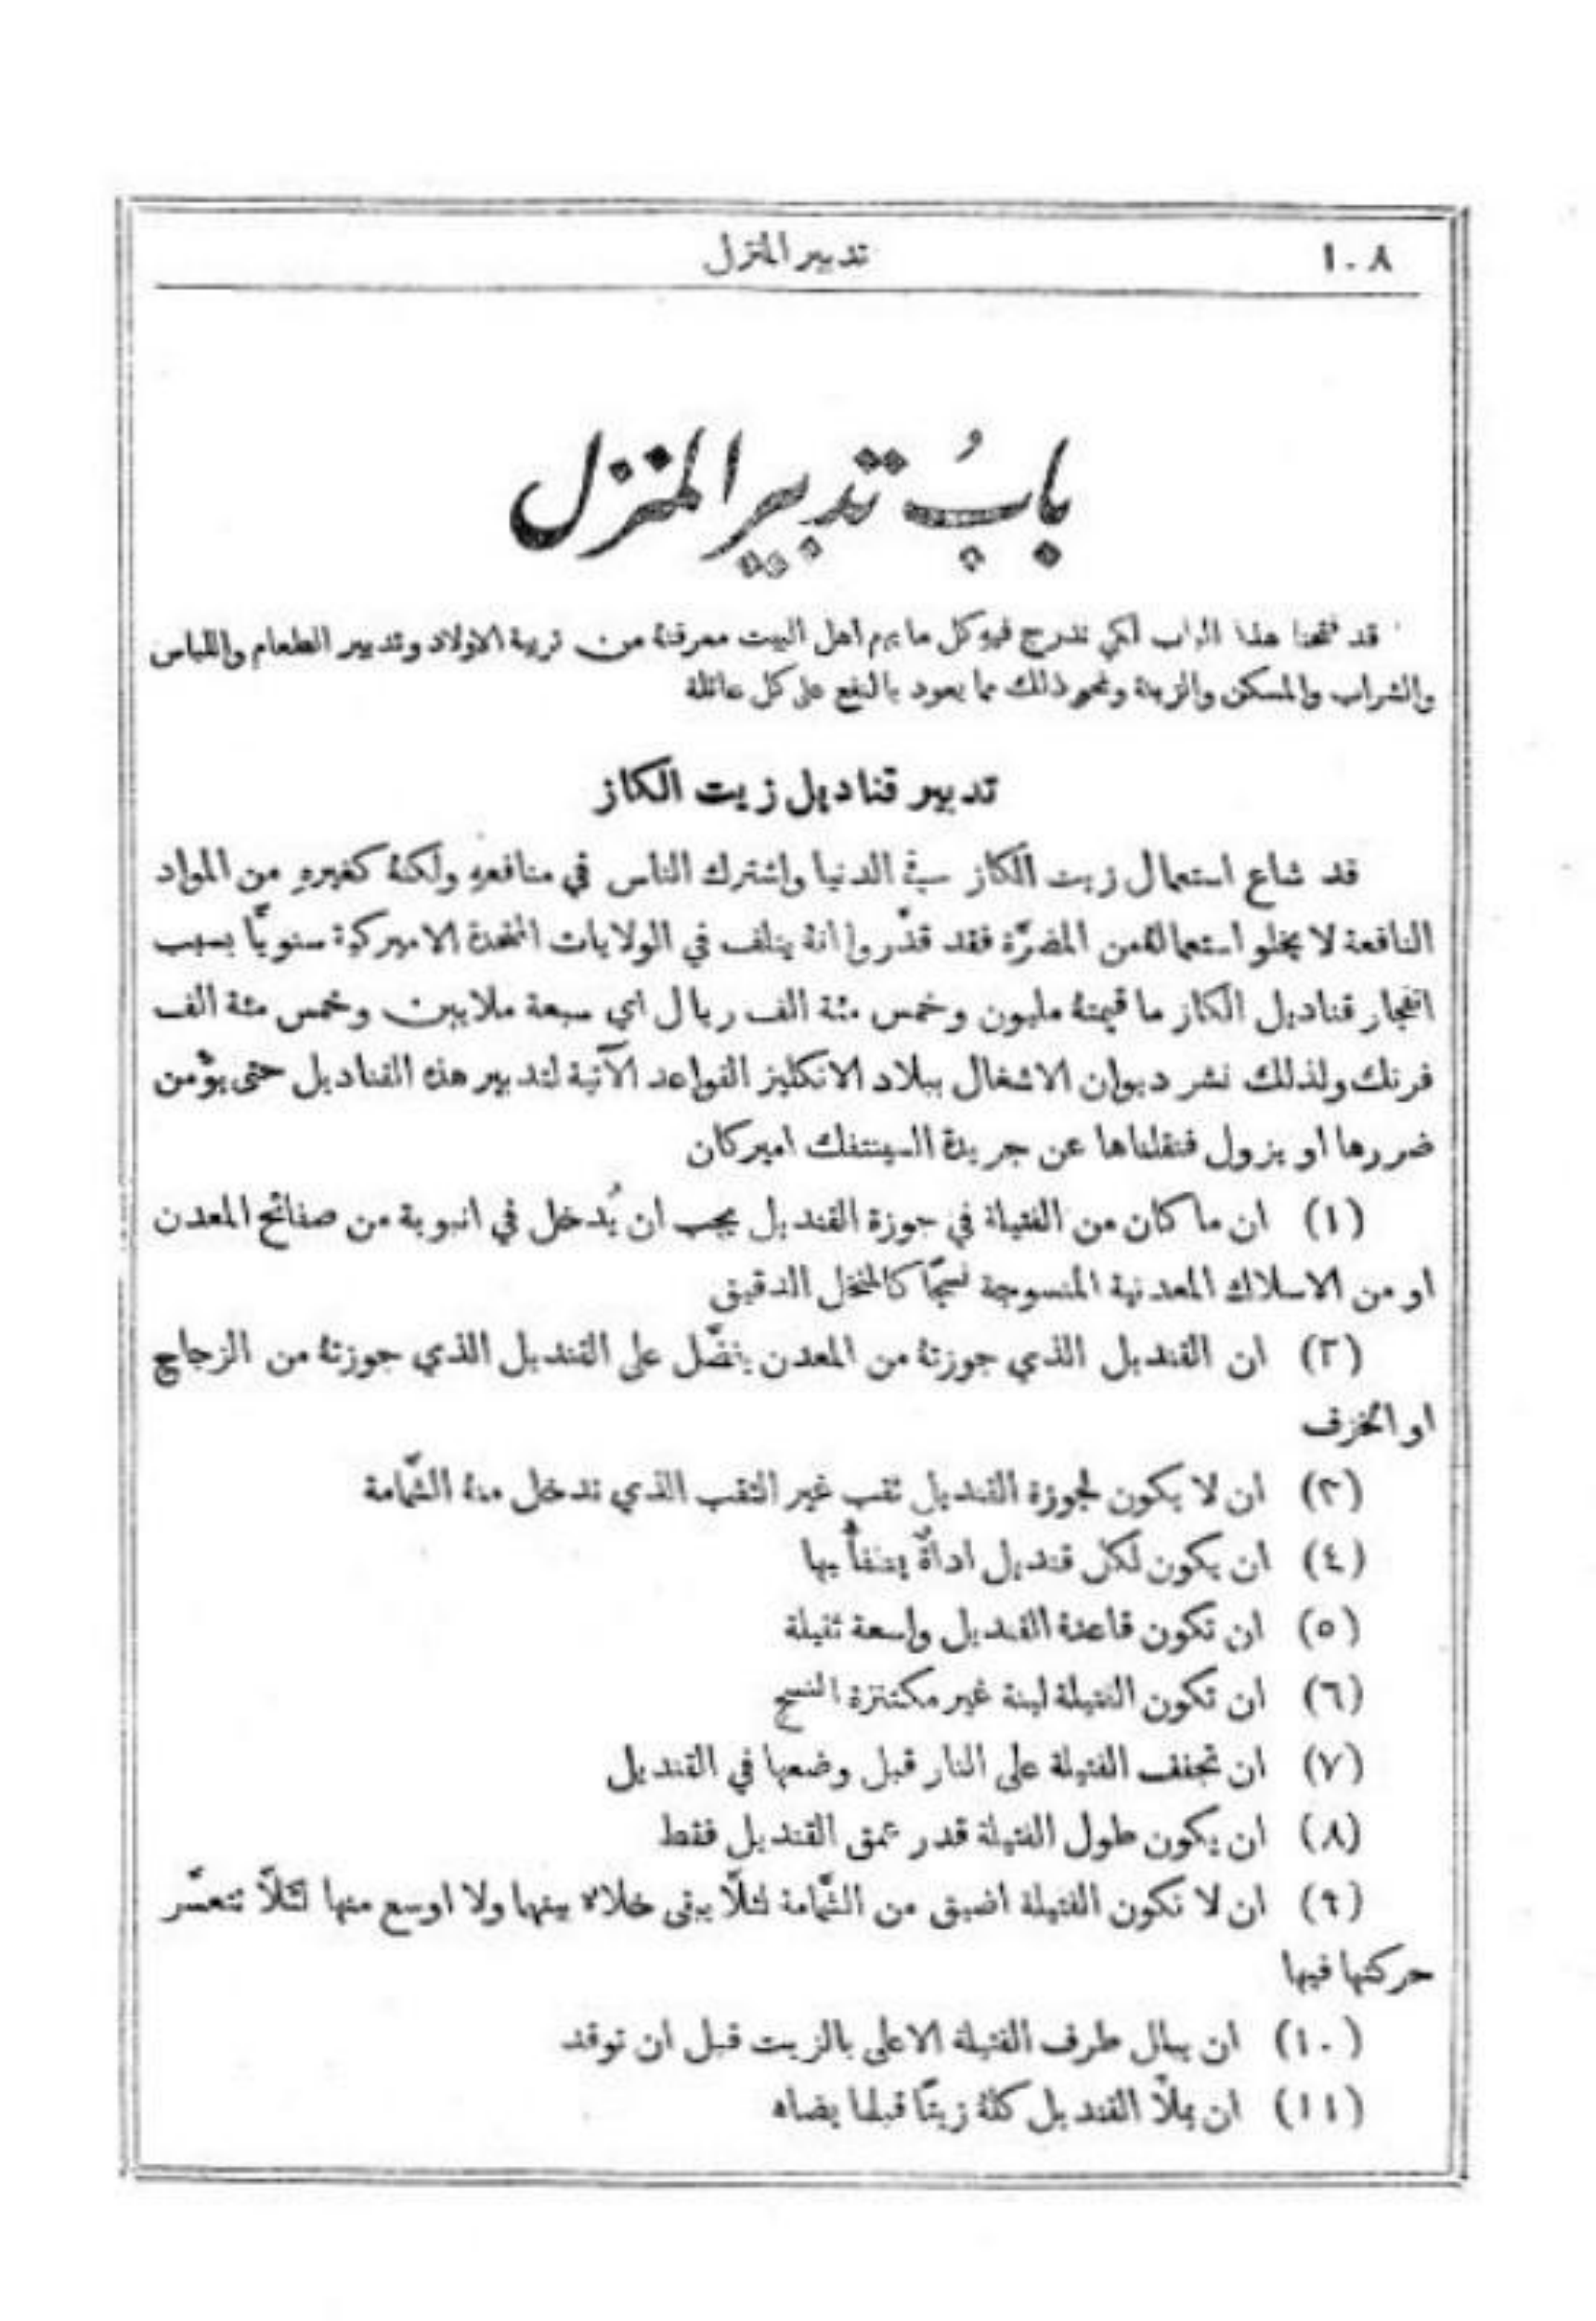 ١٠٨
تدبير المنزل
بابُ تدبير المنزل
قد فتحنا هذا الباب لكي ندرج فيهِ كل ما يهم اهل البيت معرفتهُ من تربية الاولاد وتدبير الطعام واللباس
والشراب والمسكن والزينة ونحو ذلك مما يعود بالنفع على كل عائلة
تدبير قناديل زيت الكاز
قد شاع استعمال زيت الكاز في الدنيا واشترك الناس في منافعهِ ولكنهُ كغيرهِ من المواد
النافعة لا يخلو استعمالهُ من المضرّة فقد قدّروا انهُ يتلف في الولايات المتحدة الاميركية سنويًّا بسبب
انفجار قناديل الكاز ما قيمتهُ مليون وخمس مئة الف ريال اي سبعة ملايين وخمس مئة الف
فرنك ولذلك نشر ديوان الاشغال ببلاد الانكليز القواعد الآتية لتدبير هذه القناديل حتى يؤْمن
ضررها او يزول فنقلناها عن جريدة السينتفك اميركان
(١) ان ما كان من الفتيلة في جوزة القنديل يجب ان يُدخل في انبوبة من صفائح المعدن
او من الاسلاك المعدنية المنسوجة نسجًا كالمنخل الدقيق
(٢) ان القنديل الذي جوزتهُ من المعدن يفضَّل على القنديل الذي جوزتهُ من الزجاج
او الخزف
(٣) ان لا يكون لجوزة القنديل ثقب غير الثقب الذي تدخل منهُ الشَّمامة
(٤) ان يكون لكل قنديل اداةٌ يطفأُ بها
(٥) ان تكون قاعدة القنديل واسعة ثقيلة
(٦) ان تكون الفتيلة لينة غير مكتنزة النسج
(٧) ان تجفف الفتيلة على النار قبل وضعها في القنديل
(٨) ان يكون طول الفتيلة قدر عمق القنديل فقط
(٩) ان لا تكون الفتيلة اضيق من الشَّمامة لئلَّا يبقى خلاء بينها ولا اوسع منها لئلَّا تتعسَّر
حركتها فيها
(١٠) ان يبلل طرف الفتيلة الاعلى بالزيت قبل ان توقد
(١١) ان يملأ القنديل كلهُ زيتًا قبلما يضاء